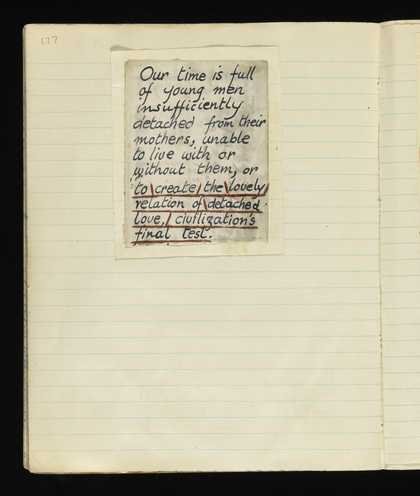 177
Our time is full
of young men
insufficiently
detached from their
mothers, unable
to live with or
without them, or
to create the lovely
relation of detached
love, civilization's
final test.